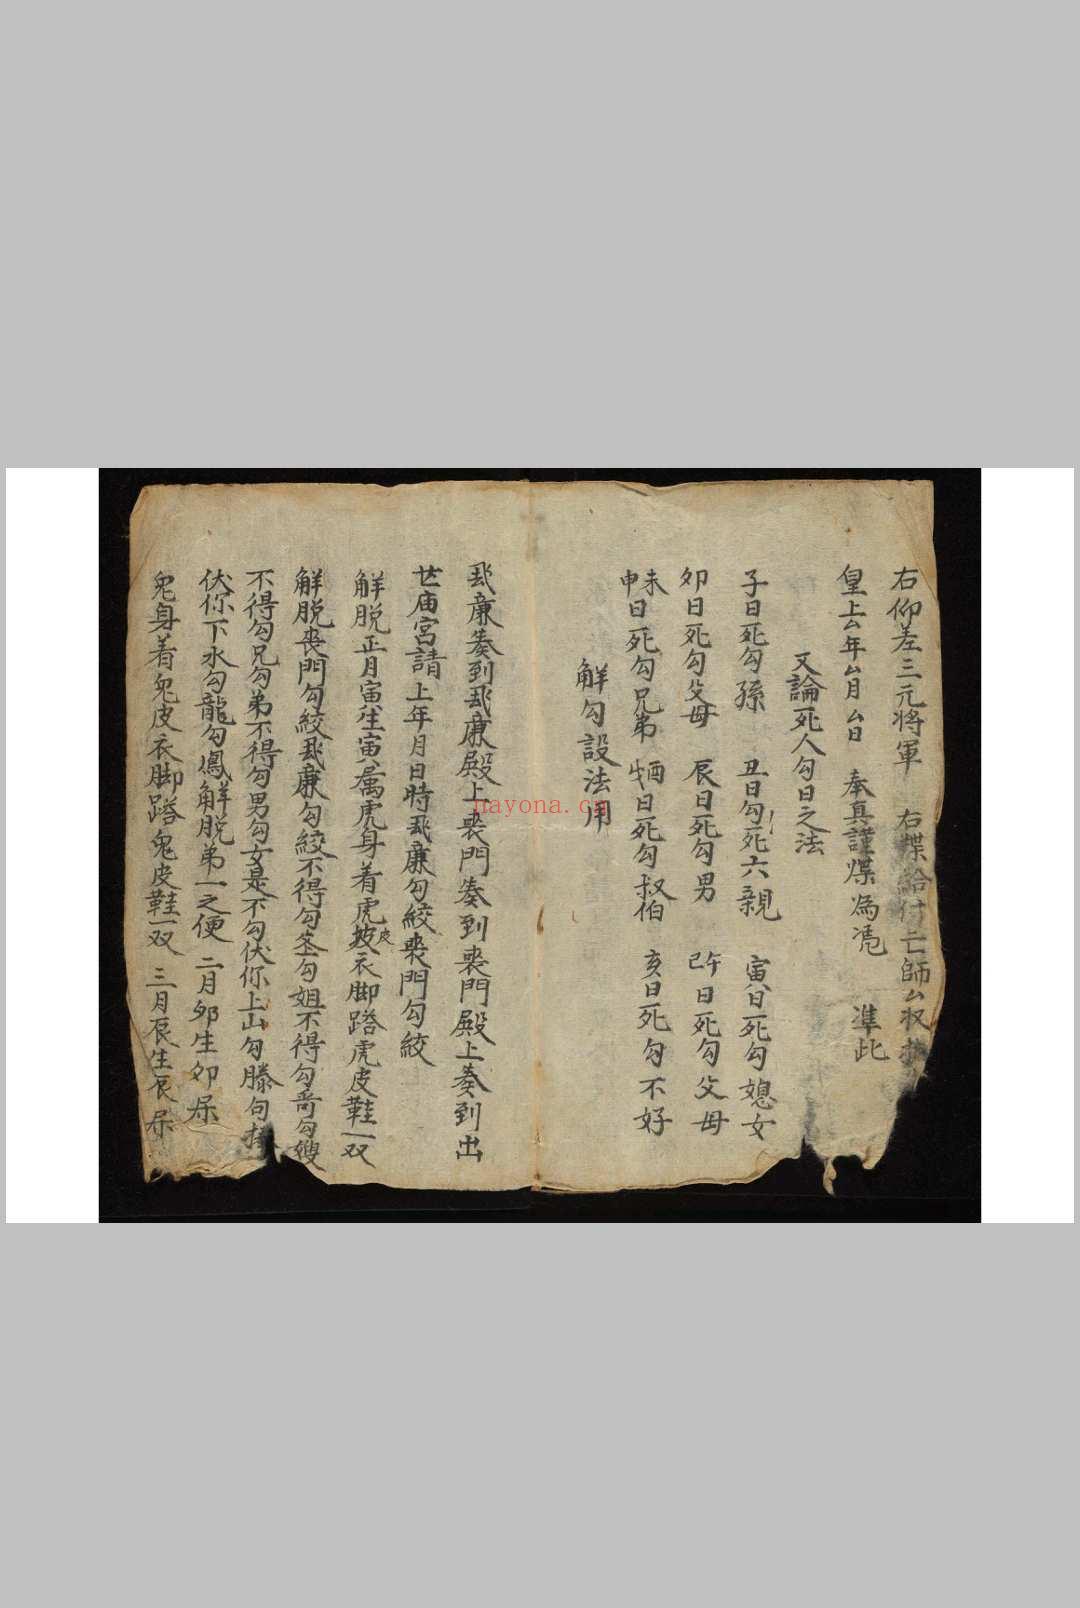 右仰差三元将軍　右牒給付亡師厶收
皇上厶年厶月厶日　奉真謹牒為凭　準此
又論死人勾日之法
子日死勾孫　丑日勾死六親　寅日死勾媳女
卯日死勾父母　辰日死勾男　巳午日死勾父母
未申日死勾兄弟　日死勾叔伯　亥日死勾不好
解勾設法用
廉奏到廉殿上丧門奏到丧門殿上奏到出
廟宮請上年月日時廉勾絞丧門勾絞
解脱正月寅生寅属虎身着虎皮披衣脚踏虎皮鞋一双
解脱丧門勾絞廉勾絞不得勾勾姐不得勾哥勾嫂
不得勾兄勾弟不得勾男勾女是不勾伏你上山勾滕句
伏你下水勾龍勾鳳解脱弟一之便　二月卯生卯属
兔身着兔皮衣脚踏兔皮鞋一双　三月辰生辰属
nayona.cn